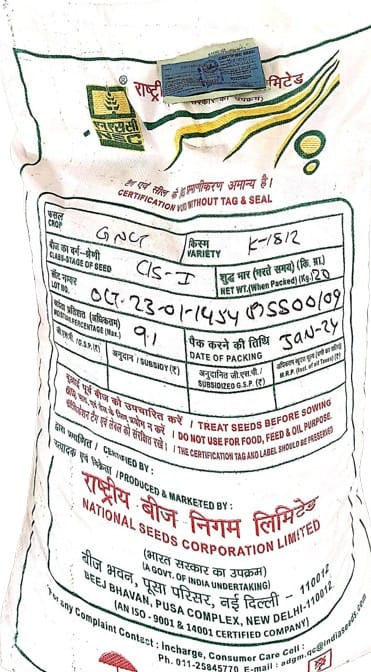 एनएससी
NSC
®
राष्ट्री मिटेड
टैग एवं सील के बिना प्रमाणीकरण अमान्य है।
CERTIFICATION VOID WITHOUT TAG & SEAL
फसल
CROP
GNUT
किस्म
VARIETY
K-1812
बीज का वर्ग-श्रेणी
CLASS-STAGE OF SEED
C/S-I
शुद्ध भार (भरते समय) (कि. ग्रा.)
NET WT.(When Packed) (Kg.) 20
लॉट नम्बर
LOT NO.
OCT-23-01-1454 (P)5500/09
MOISTURE PERCENTAGE (Max.)
9%
पैक करने की तिथि
DATE OF PACKING
JAN-24
जी.एस.पी. / G.S.P. (₹)
अनुदान / SUBSIDY (₹)
अनुदानित जी.एस.पी. /
SUBSIDIZED G.S.P. (₹)
M.R.P. (Incl. of all Taxes) (₹)
बुआई पूर्व बीज को उपचारित करें । / TREAT SEEDS BEFORE SOWING
/ DO NOT USE FOR FOOD, FEED & OIL PURPOSE.
/ THE CERTIFICATION TAG AND LABEL SHOULD BE PRESERVED
द्वारा प्रमाणित / CERTIFIED BY :
उत्पादक एवं विक्रेता /PRODUCED & MARKETED BY :
राष्ट्रीय बीज निगम लिमिटेड
NATIONAL SEEDS CORPORATION LIMITED
(भारत सरकार का उपक्रम)
(A GOVT. OF INDIA UNDERTAKING)
बीज भवन, पूसा परिसर, नई दिल्ली - 110012
BEEJ BHAVAN, PUSA COMPLEX, NEW DELHI-110012
(AN ISO - 9001 & 14001 CERTIFIED COMPANY)
For any Complaint Contact : Incharge, Consumer Care Cell :
Ph. 011-25845770 E-mail : adm.qc@indiaseeds.com